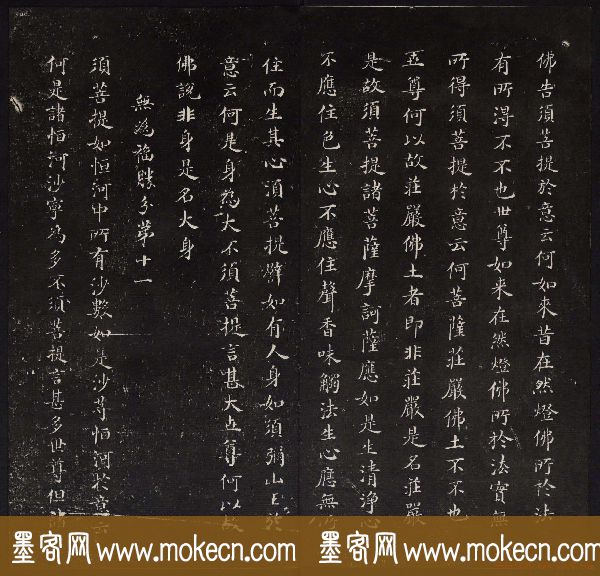 佛告須菩提於意云何如來昔在然燈佛所於法
有所得不不也世尊如来在然燈佛所於法實無
所得須菩提於意云何菩薩莊嚴佛土不不也
世尊何以故莊嚴佛土者即非莊嚴是名莊嚴
是故須菩提諸菩薩摩訶薩應如是生清淨心
不應住色生心不應住聲香味觸法生心應無所
住而生其心須菩提譬如有人身如須彌山王於
意云何是身為大不須菩提言甚大世尊何以故
佛說非身是名大身
無為福勝分第十一
須菩提如恒河中所有沙數如是沙等恒河於意云
何是諸恒河沙寧為多不須菩提言甚多世尊但諸
墨客网 www.mokecn.com 墨客网 www.mokecn.com